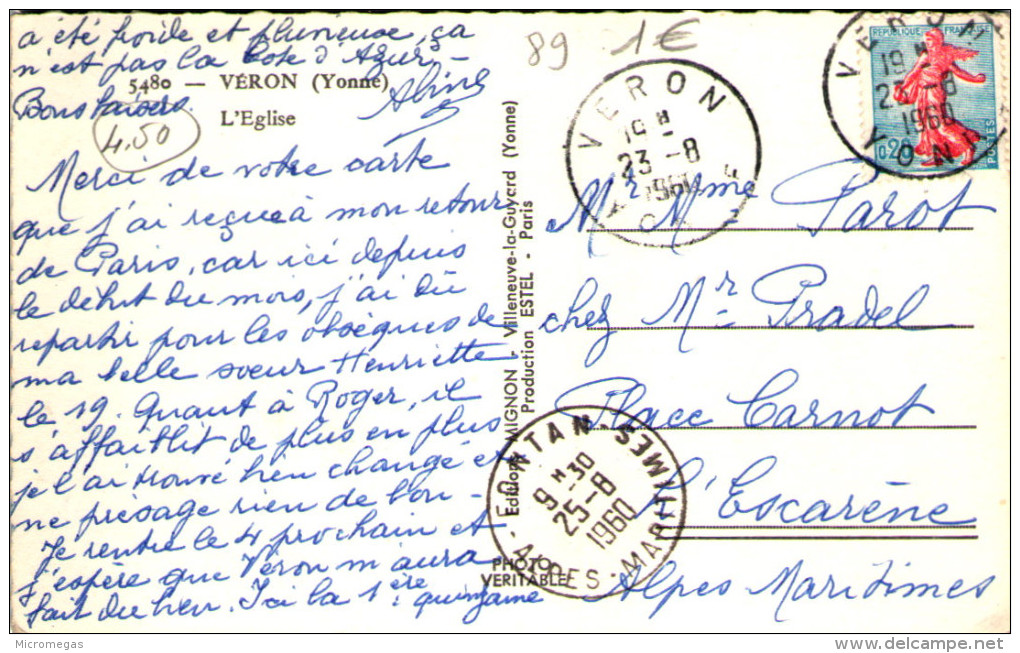 a été froide et pluvieuse, ça
n'est pas la Cote d'Azur,
5480 — VÉRON (Yonne)
Bons baisers
L'Eglise
4.50
Merci de votre carte
que j'ai reçue à mon retour
de Paris, car ici depuis
le début du mois, j'ai dû
repartir pour les obsèques de
ma belle sœur Henriette
le 19. Quant à Roger, il
s'affaiblit de plus en plus
je l'ai trouvé bien changé et
ne présage rien de bon -
Je rentre le 4 prochain et
j'espère que Véron m'aura
fait du bien. Ici la 1ère quinzaine
Editions MIGNON - Villeneuve-la-Guyard (Yonne)
Production ESTEL - Paris
PHOTO
VERITABLE
89 1€
VERON
19 H
23 - 8
1960
REPUBLIQUE FRANÇAISE
0,20
POSTES
VERON
19 H
23 - 8
1960
YONNE
Mr Mme Parot
chez Mr Pradel
Place Carnot
l'Escarène
Alpes Maritimes
FONTAN-SEMIMES
9 H 30
25 - 8
1960
ALPES-MARITIMES
Micromegas
delcampe.net